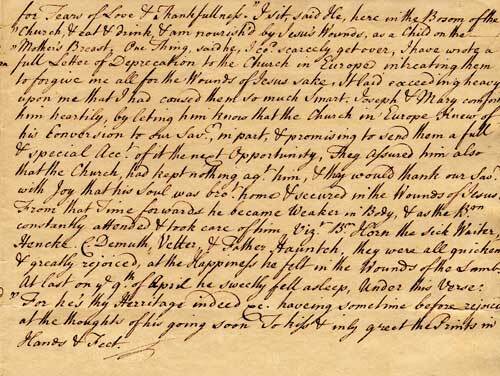 for Tears of Love & Thankfullness. "I sit, said He, here in the Bosom of the
"Church, & eat & drink, & am nourish'd by Jesus's Wounds, as a Child on the
"Mother's Breast, One Thing, said he, I co.d scarcely get over, I have wrote a
full Letter of Deprecation to the Church in Europe intreating them
to forgive me all for the Wounds of Jesus sake, It laid exceeding heavy
upon me that I had caused them so much Smart. Joseph & Mary comfor
him heartily, by leting him know that the Church in Europe Knew of
his conversion to our Sav.r in part, & promising to send them a full
& special Acc.t of it the next Opportunity, They assured him also
that the Church, had kept nothing ag.t him, & they would thank our Sav.r
with Joy that his Soul was bro.t home & secured in the Wounds of Jesus
From that Time forwards he became Weaker in Body, & as the Br.on
constantly attended & took care of him, Viz.t Br. Horn the sick Waiter,
Hencke, C. Demuth, Vetter, & Father Hauntch, they were all quicken
& greatly rejoiced, at the Happiness he felt in the Wounds of the Lamb
At last on y.e 9.th of April he sweetly fell asleep, Under this Verse:
"For he's thy Heritage indeed &c: having sometime before rejoice
at the thoughts of his going soon To kiss & inly greet the Prints in
Hands & Feet.